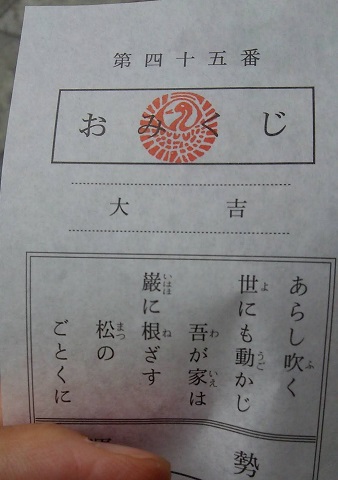 第四十五番
おみくじ
大吉
あらし吹く
世にも動かじ
吾が家は
巌に根ざす
松の
ごとくに
勢